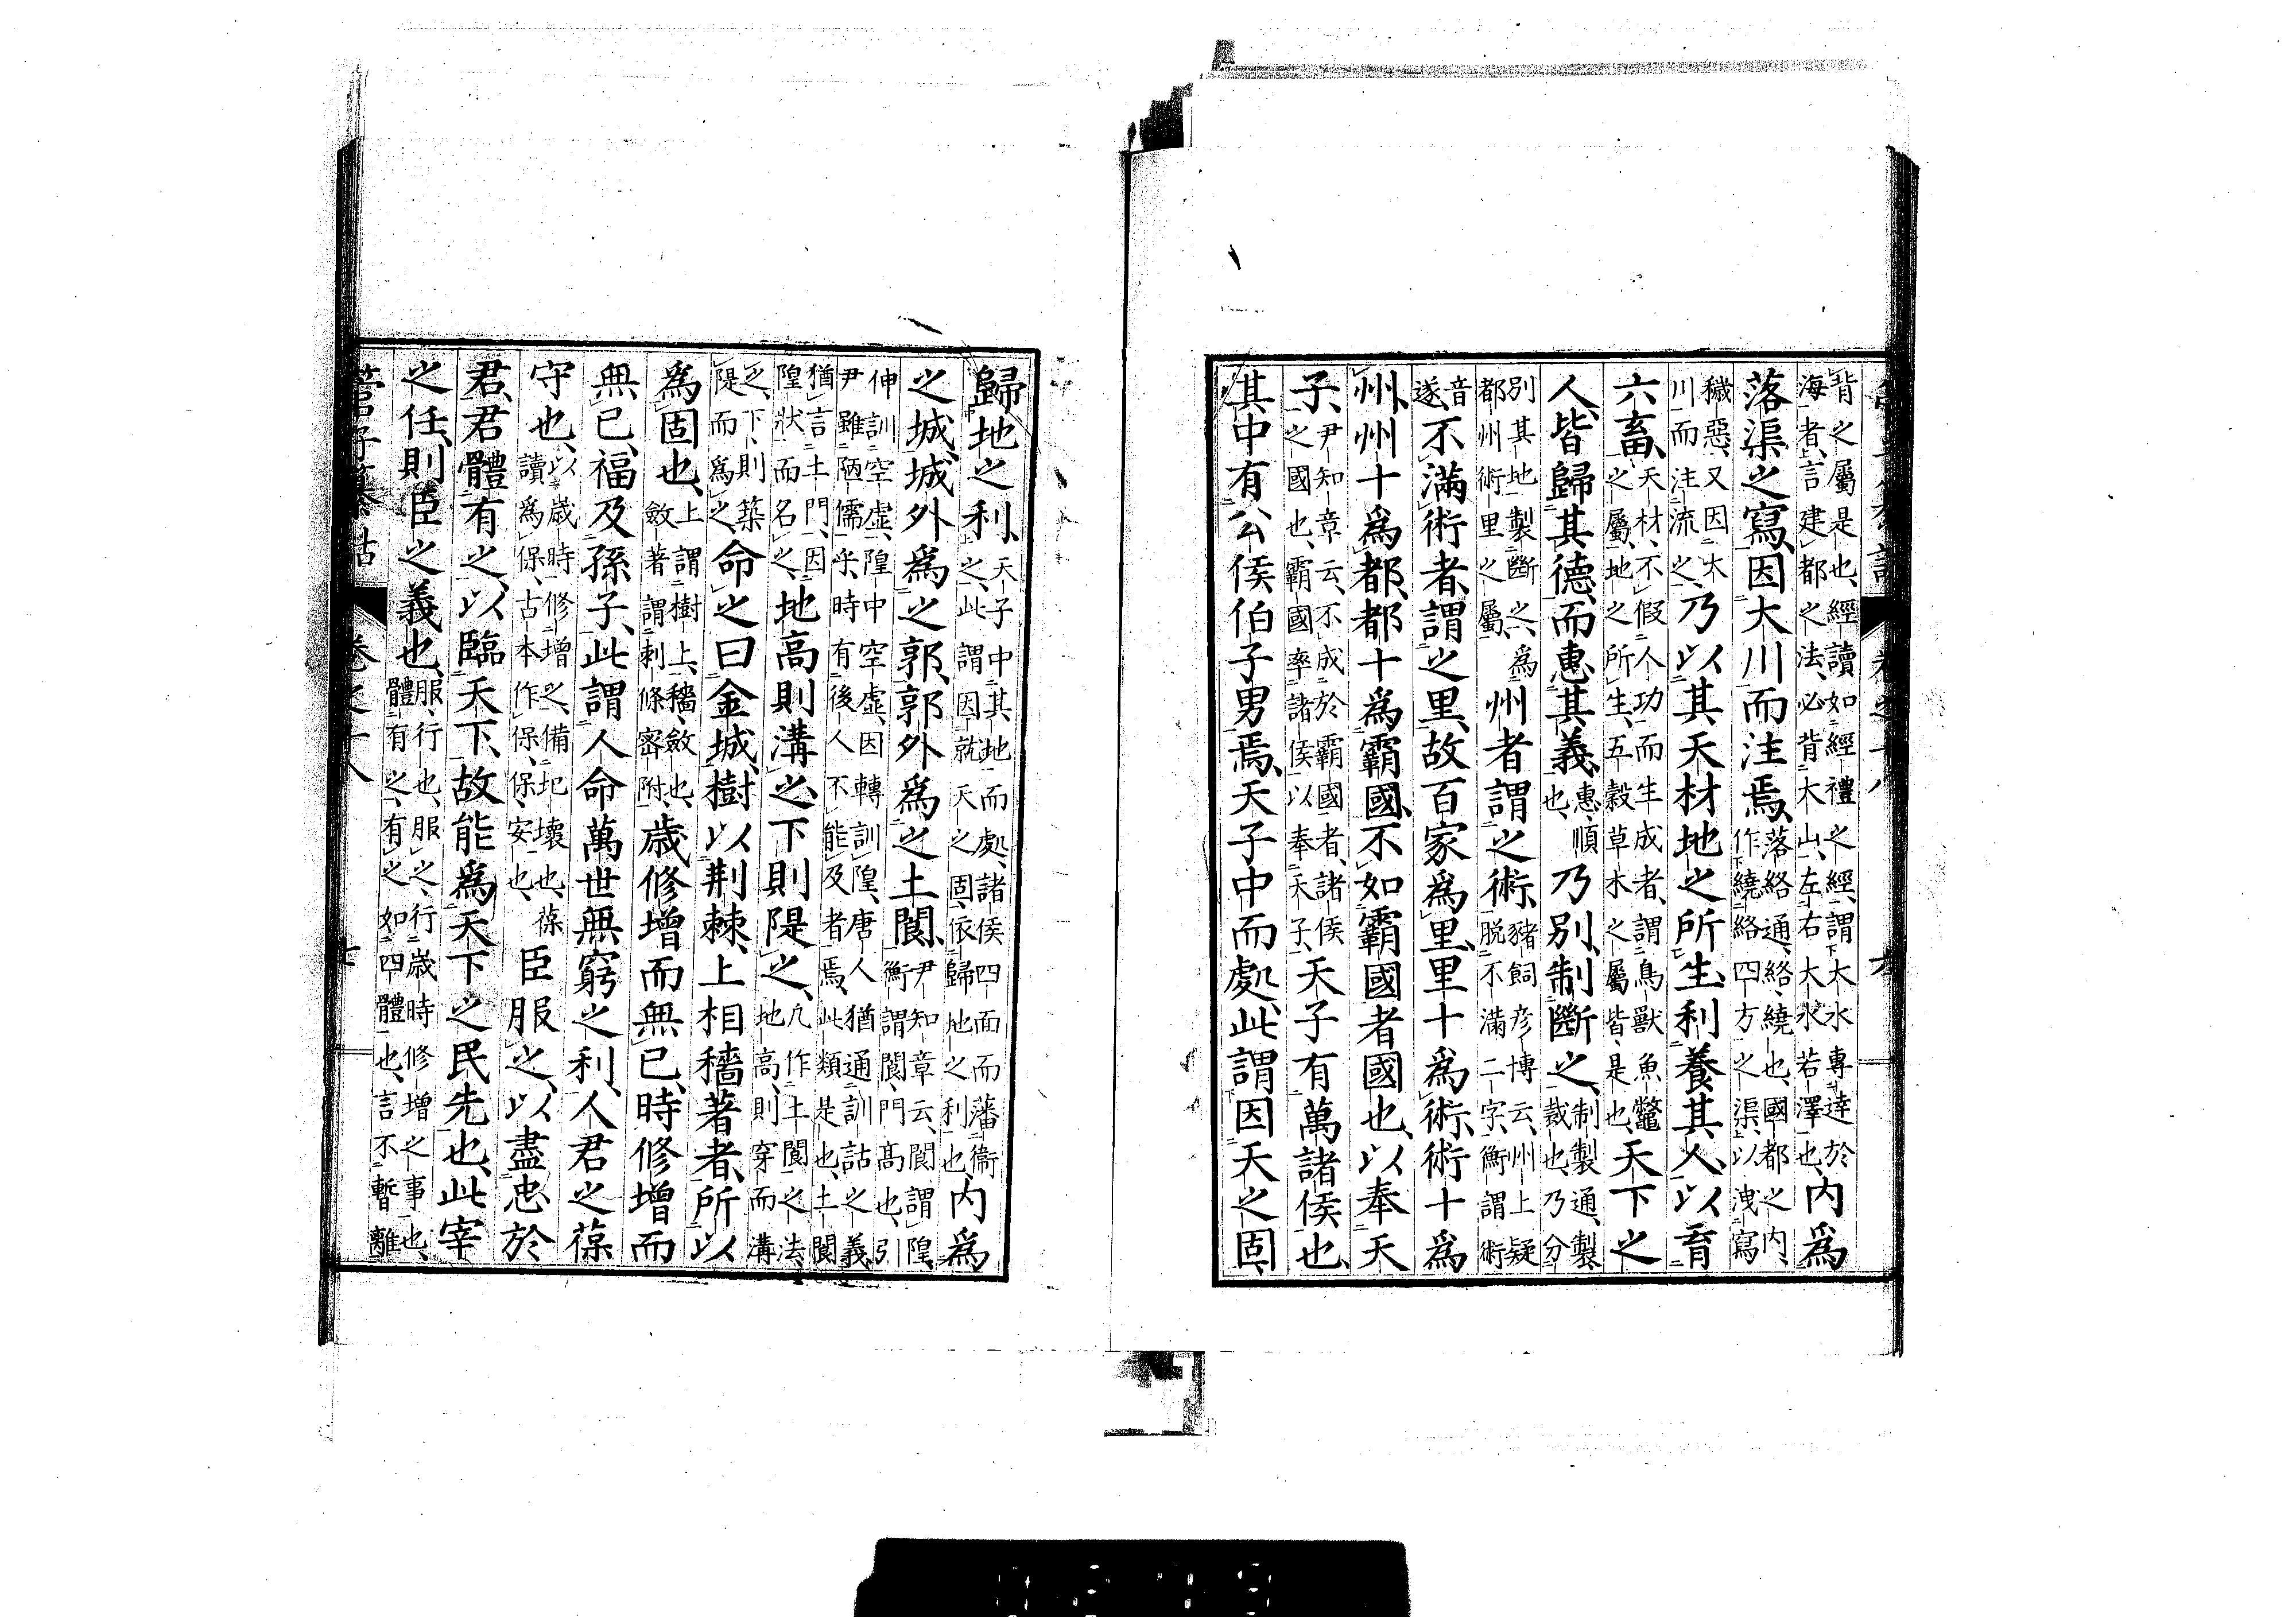 背之屬是也、經讀如經禮之經、謂大水專達於
海者、言建都之法、必背大山、左右大水若澤也、內爲
落渠之寫、因大川而注焉、落絡通、絡、繞也、國都之內、
作繞絡四方之渠、以洩寫
穢惡、又因大
川而注流之、乃以其天材地之所生利、養其人、以育
六畜、天材、不假人功而生成者、謂鳥獸魚鼈
之屬、地之所生、五穀草木之屬皆是也、天下之
人、皆歸其德、而惠其義、惠、順
也、乃別制斷之、制製通、製、
裁也、乃分
別其地製斷之、爲
都州術里之屬、州者謂之術、豬飼彥博云、州上疑
脫不滿二字、衡謂術
音
遂、不滿術者、謂之里、故百家爲里、里十爲術、術十爲
州、州十爲都、都十爲霸國、不如霸國者國也、以奉天
子、尹知章云、不成於霸國者、諸侯
之國也、霸國率諸侯以奉天子、天子有萬諸侯也、
其中有公侯伯子男焉、天子中而處、此謂因天之固、
歸地之利、天子中其地而處、諸侯四面而藩衞
之、此謂因就天之固、依歸地之利也、內爲
之城、城外爲之郭、郭外爲之土閬、尹知章云、閬謂隍、
衡謂閬、門高也、引
伸訓空虛、隍中空虛、因轉訓隍、唐人猶通訓詁之義、
尹雖陋儒乎、時有後人不能及者焉、此類是也、土閬
猶言土門、因
隍狀而名之、地高則溝之、下則隄之、凡作土閬之法、
地高、則穿而溝
之、下、則築
隄而爲之、命之曰金城、樹以荆棘、上相穡著者、所以
爲固也、上謂樹上、穡、斂也、
斂著謂刺條密附、歲修增而無已、時修增而
無已、福及孫子、此謂人命萬世無窮之利、人君之葆
守也、以歲時修增之、備圯壞也、葆
讀爲保、古本作保、保、安也、臣服之、以盡忠於
君、君體有之、以臨天下、故能爲天下之民先也、此宰
之任、則臣之義也、服、行也、服之、行歲時修增之事也、
體有之、有之如四體也、言不暫離
管子纂詁 卷之十八 七